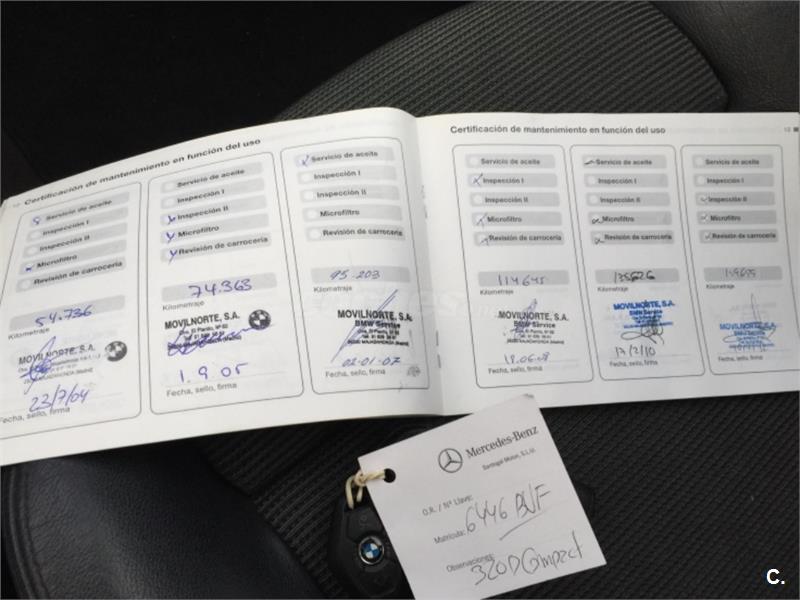 Certificación de mantenimiento en función del uso
Servicio de aceite
Inspección I
Inspección II
Microfiltro
Revisión de carrocería
54.736
Kilometraje
MOVILNORTE, S.A.
23/7/04
Fecha, sello, firma
Servicio de aceite
Inspección I
Inspección II
Microfiltro
Revisión de carrocería
74.363
Kilometraje
MOVILNORTE, S.A.
Ctra. El Plantío, Nº 62
1.9.05
Fecha, sello, firma
Servicio de aceite
Inspección I
Inspección II
Microfiltro
Revisión de carrocería
95.203
Kilometraje
MOVILNORTE, S.A.
BMW Service
02-01-07
Fecha, sello, firma
Certificación de mantenimiento en función del uso
Servicio de aceite
Inspección I
Inspección II
Microfiltro
Revisión de carrocería
114645
Kilometraje
MOVILNORTE, S.A.
BMW Service
Fecha, sello, firma
Servicio de aceite
Inspección I
Inspección II
Microfiltro
Revisión de carrocería
Kilometraje
MOVILNORTE, S.A.
BMW Service
17/2/10
Fecha, sello, firma
Servicio de aceite
Inspección I
Inspección II
Microfiltro
Revisión de carrocería
Kilometraje
MOVILNORTE, S.A.
Fecha, sello, firma
Mercedes-Benz
Santogal Motor, S.L.U.
O.R. / Nº Llave:
Matrícula: 6446 BVF
Observaciones:
320D Compact
BMW
C.